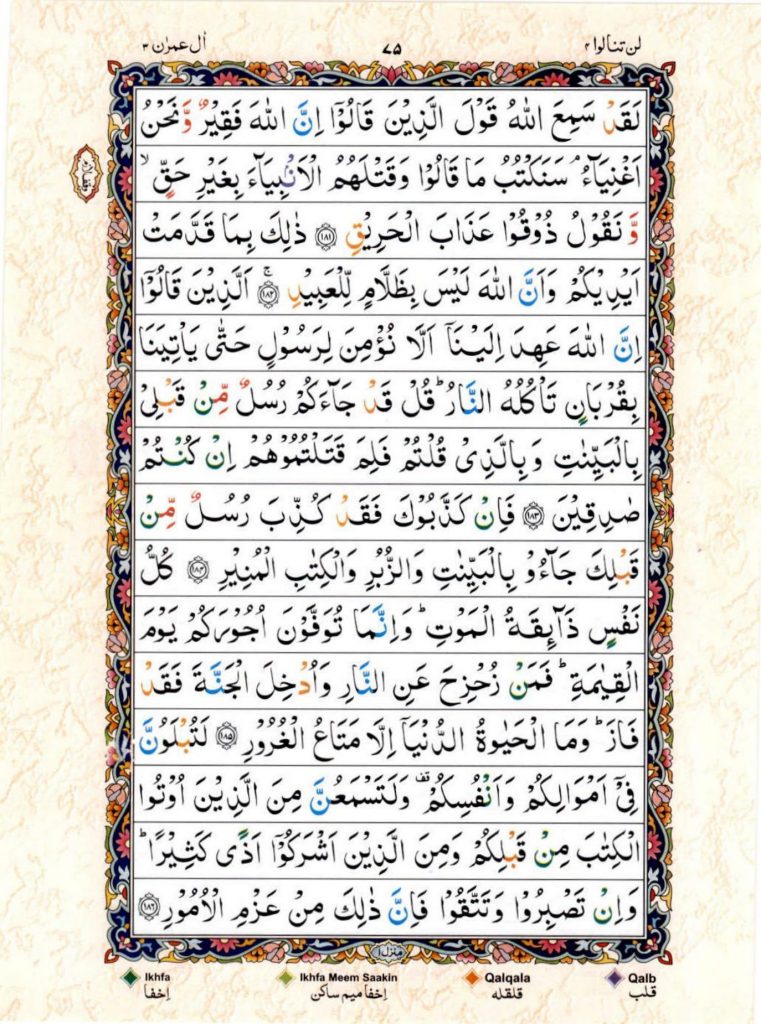 لن تنالوا ۴ ۷۵ اٰل عمرٰن ۳
لَقَدْ سَمِعَ اللّٰهُ قَوْلَ الَّذِيْنَ قَالُوْٓا اِنَّ اللّٰهَ فَقِيْرٌ وَّنَحْنُ
اَغْنِيَآءُ ۘ سَنَكْتُبُ مَا قَالُوْا وَقَتْلَهُمُ الْاَنْۢبِيَآءَ بِغَيْرِ حَقٍّ ۙ
وَّ نَقُوْلُ ذُوْقُوْا عَذَابَ الْحَرِيْقِ ﴿۱۸۱﴾ ذٰلِكَ بِمَا قَدَّمَتْ
اَيْدِيْكُمْ وَاَنَّ اللّٰهَ لَيْسَ بِظَلَّامٍ لِّلْعَبِيْدِ ۚ ﴿۱۸۲﴾ اَلَّذِيْنَ قَالُوْٓا
اِنَّ اللّٰهَ عَهِدَ اِلَيْنَآ اَلَّا نُؤْمِنَ لِرَسُوْلٍ حَتّٰى يَاْتِيَنَا
بِقُرْبَانٍ تَاْكُلُهُ النَّارُ ؕ قُلْ قَدْ جَآءَكُمْ رُسُلٌ مِّنْ قَبْلِىْ
بِالْبَيِّنٰتِ وَبِالَّذِىْ قُلْتُمْ فَلِمَ قَتَلْتُمُوْهُمْ اِنْ كُنْتُمْ
صٰدِقِيْنَ ﴿۱۸۳﴾ فَاِنْ كَذَّبُوْكَ فَقَدْ كُذِّبَ رُسُلٌ مِّنْ
قَبْلِكَ جَآءُوْ بِالْبَيِّنٰتِ وَالزُّبُرِ وَالْكِتٰبِ الْمُنِيْرِ ﴿۱۸۴﴾ كُلُّ
نَفْسٍ ذَآئِقَةُ الْمَوْتِ ؕ وَاِنَّمَا تُوَفَّوْنَ اُجُوْرَكُمْ يَوْمَ
الْقِيٰمَةِ ؕ فَمَنْ زُحْزِحَ عَنِ النَّارِ وَاُدْخِلَ الْجَنَّةَ فَقَدْ
فَازَ ؕ وَمَا الْحَيٰوةُ الدُّنْيَآ اِلَّا مَتَاعُ الْغُرُوْرِ ﴿۱۸۵﴾ لَتُبْلَوُنَّ
فِىْٓ اَمْوَالِكُمْ وَاَنْفُسِكُمْ ۟ وَلَتَسْمَعُنَّ مِنَ الَّذِيْنَ اُوْتُوا
الْكِتٰبَ مِنْ قَبْلِكُمْ وَمِنَ الَّذِيْنَ اَشْرَكُوْٓا اَذًى كَثِيْرًا ؕ
وَاِنْ تَصْبِرُوْا وَتَتَّقُوْا فَاِنَّ ذٰلِكَ مِنْ عَزْمِ الْاُمُوْرِ ﴿۱۸۶﴾
منزل ۱
Ikhfa Ikhfa Meem Saakin Qalqala Qalb
اِخفا اِخفا میم ساکن قلقله قلب